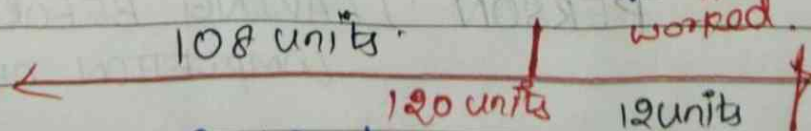 108 units.
worked.
120 units
12units